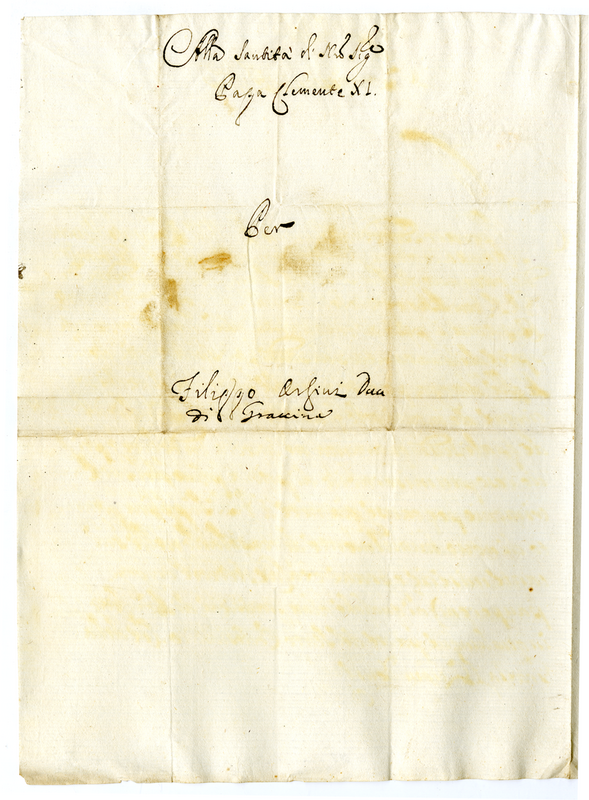 Alla Santità di Nro Sigre
Papa Clemente XI.
Per
Filippo Orsini Duca
di Gravina